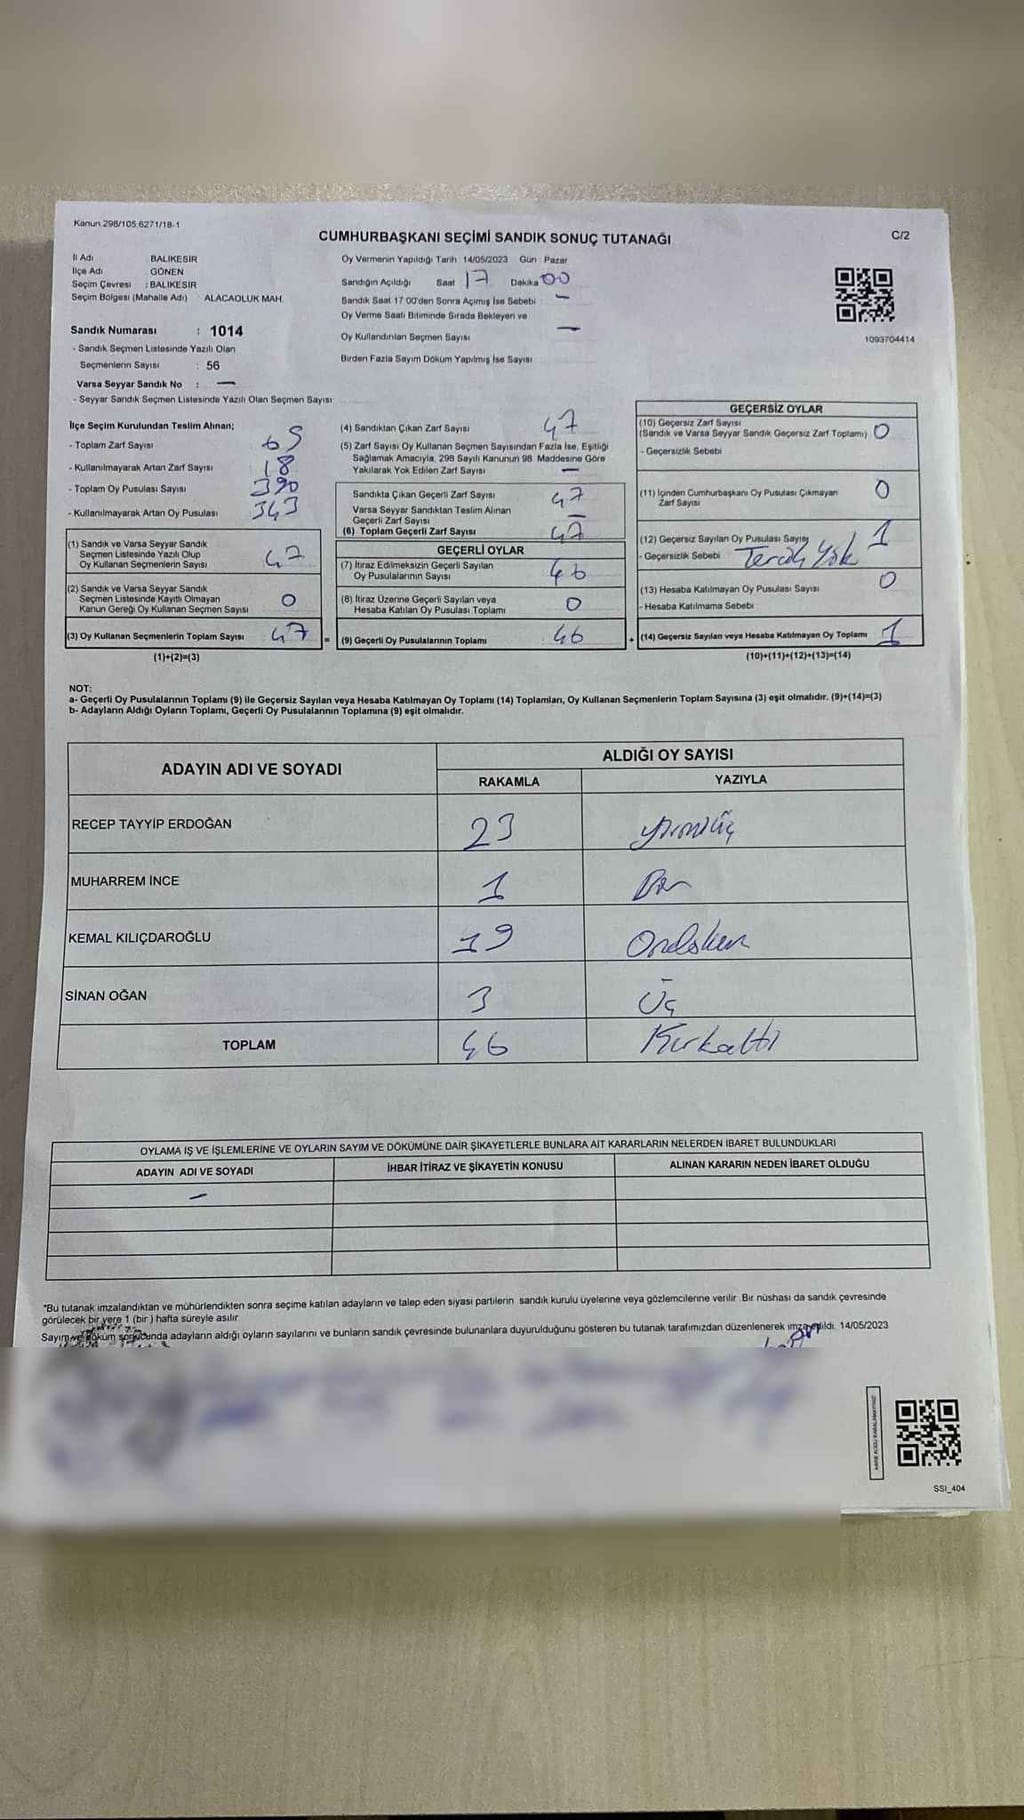 Kanun 298/105 6271/18-1
CUMHURBAŞKANI SEÇİMİ SANDIK SONUÇ TUTANAĞI
C/2
İl Adı BALIKESİR
İlçe Adı : GÖNEN
Seçim Çevresi : BALIKESİR
Seçim Bölgesi (Mahalle Adı) ALACAOLUK MAH.
Sandık Numarası : 1014
- Sandık Seçmen Listesinde Yazılı Olan
Seçmenlerin Sayısı : 56
Varsa Seyyar Sandık No : —
- Seyyar Sandık Seçmen Listesinde Yazılı Olan Seçmen Sayısı
Oy Vermenin Yapıldığı Tarih 14/05/2023 Gün : Pazar
Sandığın Açıldığı Saat 17 Dakika 00
Sandık Saat 17.00'den Sonra Açımış İse Sebebi —
Oy Verme Saati Bitiminde Sırada Bekleyen ve
Oy Kullandırılan Seçmen Sayısı —
Birden Fazla Sayım Döküm Yapılmış İse Sayısı
1093704414
İlçe Seçim Kurulundan Teslim Alınan;
- Toplam Zarf Sayısı 65
- Kullanılmayarak Artan Zarf Sayısı 18
- Toplam Oy Pusulası Sayısı 390
- Kullanılmayarak Artan Oy Pusulası 343
(1) Sandık ve Varsa Seyyar Sandık
Seçmen Listesinde Yazılı Olup
Oy Kullanan Seçmenlerin Sayısı 47
(2) Sandık ve Varsa Seyyar Sandık
Seçmen Listesinde Kayıtlı Olmayan
Kanun Gereği Oy Kullanan Seçmen Sayısı 0
(3) Oy Kullanan Seçmenlerin Toplam Sayısı 47 =
(1)+(2)=(3)
(4) Sandıktan Çıkan Zarf Sayısı 47
(5) Zarf Sayısı Oy Kullanan Seçmen Sayısından Fazla İse, Eşitliği
Sağlamak Amacıyla, 298 Sayılı Kanunun 98. Maddesine Göre
Yakılarak Yok Edilen Zarf Sayısı —
Sandıkta Çıkan Geçerli Zarf Sayısı 47
Varsa Seyyar Sandıktan Teslim Alınan
Geçerli Zarf Sayısı —
(6) Toplam Geçerli Zarf Sayısı 47
GEÇERLİ OYLAR
(7) İtiraz Edilmeksizin Geçerli Sayılan
Oy Pusulalarının Sayısı 46
(8) İtiraz Üzerine Geçerli Sayılan veya
Hesaba Katılan Oy Pusulası Toplamı 0
(9) Geçerli Oy Pusulalarının Toplamı 46 +
GEÇERSİZ OYLAR
(10) Geçersiz Zarf Sayısı
(Sandık ve Varsa Seyyar Sandık Geçersiz Zarf Toplamı) 0
- Geçersizlik Sebebi
(11) İçinden Cumhurbaşkanı Oy Pusulası Çıkmayan
Zarf Sayısı 0
(12) Geçersiz Sayılan Oy Pusulası Sayısı 1
- Geçersizlik Sebebi Tercih Yok
(13) Hesaba Katılmayan Oy Pusulası Sayısı 0
- Hesaba Katılmama Sebebi
(14) Geçersiz Sayılan veya Hesaba Katılmayan Oy Toplamı 1
(10)+(11)+(12)+(13)=(14)
NOT:
a- Geçerli Oy Pusulalarının Toplamı (9) ile Geçersiz Sayılan veya Hesaba Katılmayan Oy Toplamı (14) Toplamları, Oy Kullanan Seçmenlerin Toplam Sayısına (3) eşit olmalıdır. (9)+(14)=(3)
b- Adayların Aldığı Oyların Toplamı, Geçerli Oy Pusulalarının Toplamına (9) eşit olmalıdır.
ADAYIN ADI VE SOYADI
ALDIĞI OY SAYISI
RAKAMLA YAZIYLA
RECEP TAYYİP ERDOĞAN 23 yirmiüç
MUHARREM İNCE 1 Bir
KEMAL KILIÇDAROĞLU 19 Ondokuz
SİNAN OĞAN 3 Üç
TOPLAM 46 Kırkaltı
OYLAMA İŞ VE İŞLEMLERİNE VE OYLARIN SAYIM VE DÖKÜMÜNE DAİR ŞİKAYETLERLE BUNLARA AİT KARARLARIN NELERDEN İBARET BULUNDUKLARI
ADAYIN ADI VE SOYADI İHBAR İTİRAZ VE ŞİKAYETİN KONUSU ALINAN KARARIN NEDEN İBARET OLDUĞU
—
*Bu tutanak imzalandıktan ve mühürlendikten sonra seçime katılan adayların ve talep eden siyasi partilerin sandık kurulu üyelerine veya gözlemcilerine verilir. Bir nüshası da sandık çevresinde
görülecek bir yere 1 (bir) hafta süreyle asılır.
Sayım ve döküm sonucunda adayların aldığı oyların sayılarını ve bunların sandık çevresinde bulunanlara duyurulduğunu gösteren bu tutanak tarafımızdan düzenlenerek imza edildi. 14/05/2023
SSI_404